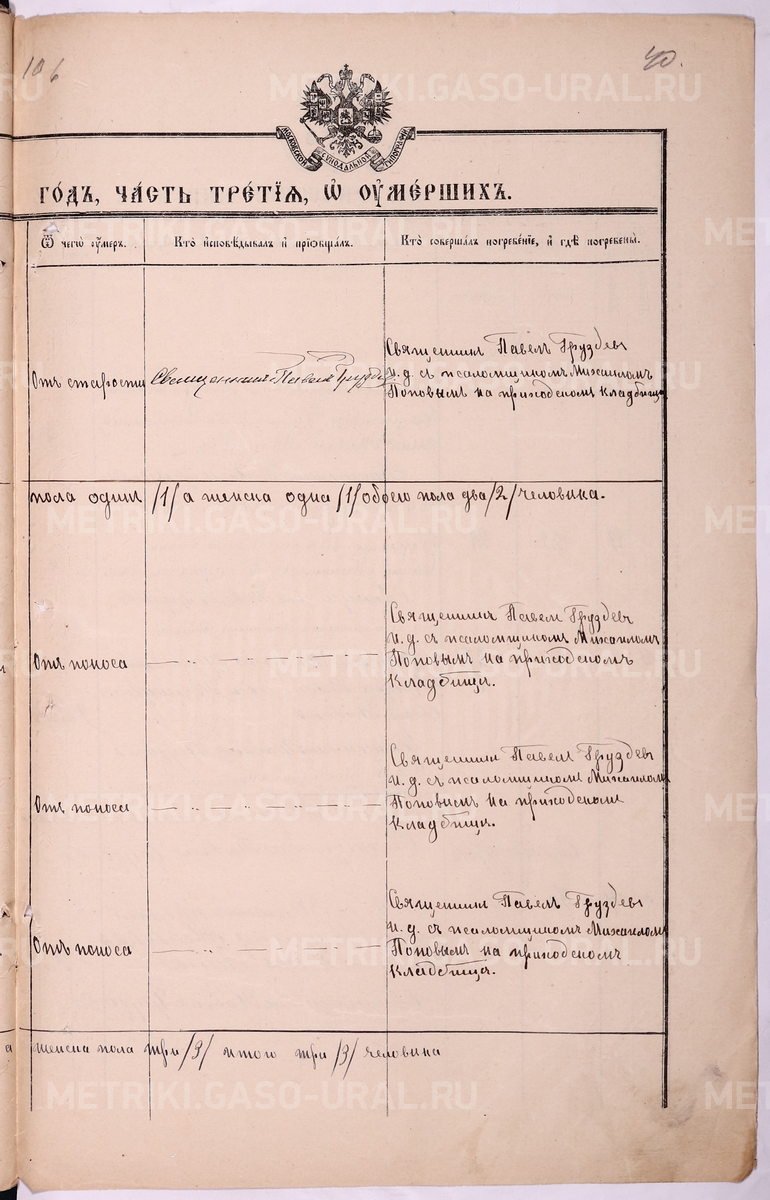 106
40.
МОСКОВСКОЙ СѴНОДАЛЬНОЙ ТИПОГРАФІИ
ГО́ДЪ, ЧА́СТЬ ТРЕ́ТІѦ, Ѡ҆ ОУ҆МЕ́РШИХЪ.
Ѿ чегѡ̀ оу҆́меръ.
Кто̀ и҆сповѣ́дывалъ и҆ прїѡбща́лъ.
Кто̀ соверша́лъ погребе́нїе, и҆ гдѣ̀ погребены̀.
Отъ старости
Священникъ Павелъ Груздевъ
Священникъ Павелъ Груздевъ
и.д. съ псаломщикомъ Михаиломъ
Поповымъ на приходскомъ кладбищѣ
пола одинъ /1/ а женска одна /1/ обоего пола два /2/ человѣка.
Отъ поноса
Священникъ Павелъ Груздевъ
и.д. съ псаломщикомъ Михаиломъ
Поповымъ на приходскомъ
кладбищѣ.
Отъ поноса
Священникъ Павелъ Груздевъ
и.д. съ псаломщикомъ Михаиломъ
Поповымъ на приходскомъ
кладбищѣ.
Отъ поноса
Священникъ Павелъ Груздевъ
и.д. съ псаломщикомъ Михаиломъ
Поповымъ на приходскомъ
кладбищѣ.
женска пола три /3/ итого три /3/ человѣка
METRIKI.GASO-URAL.RU